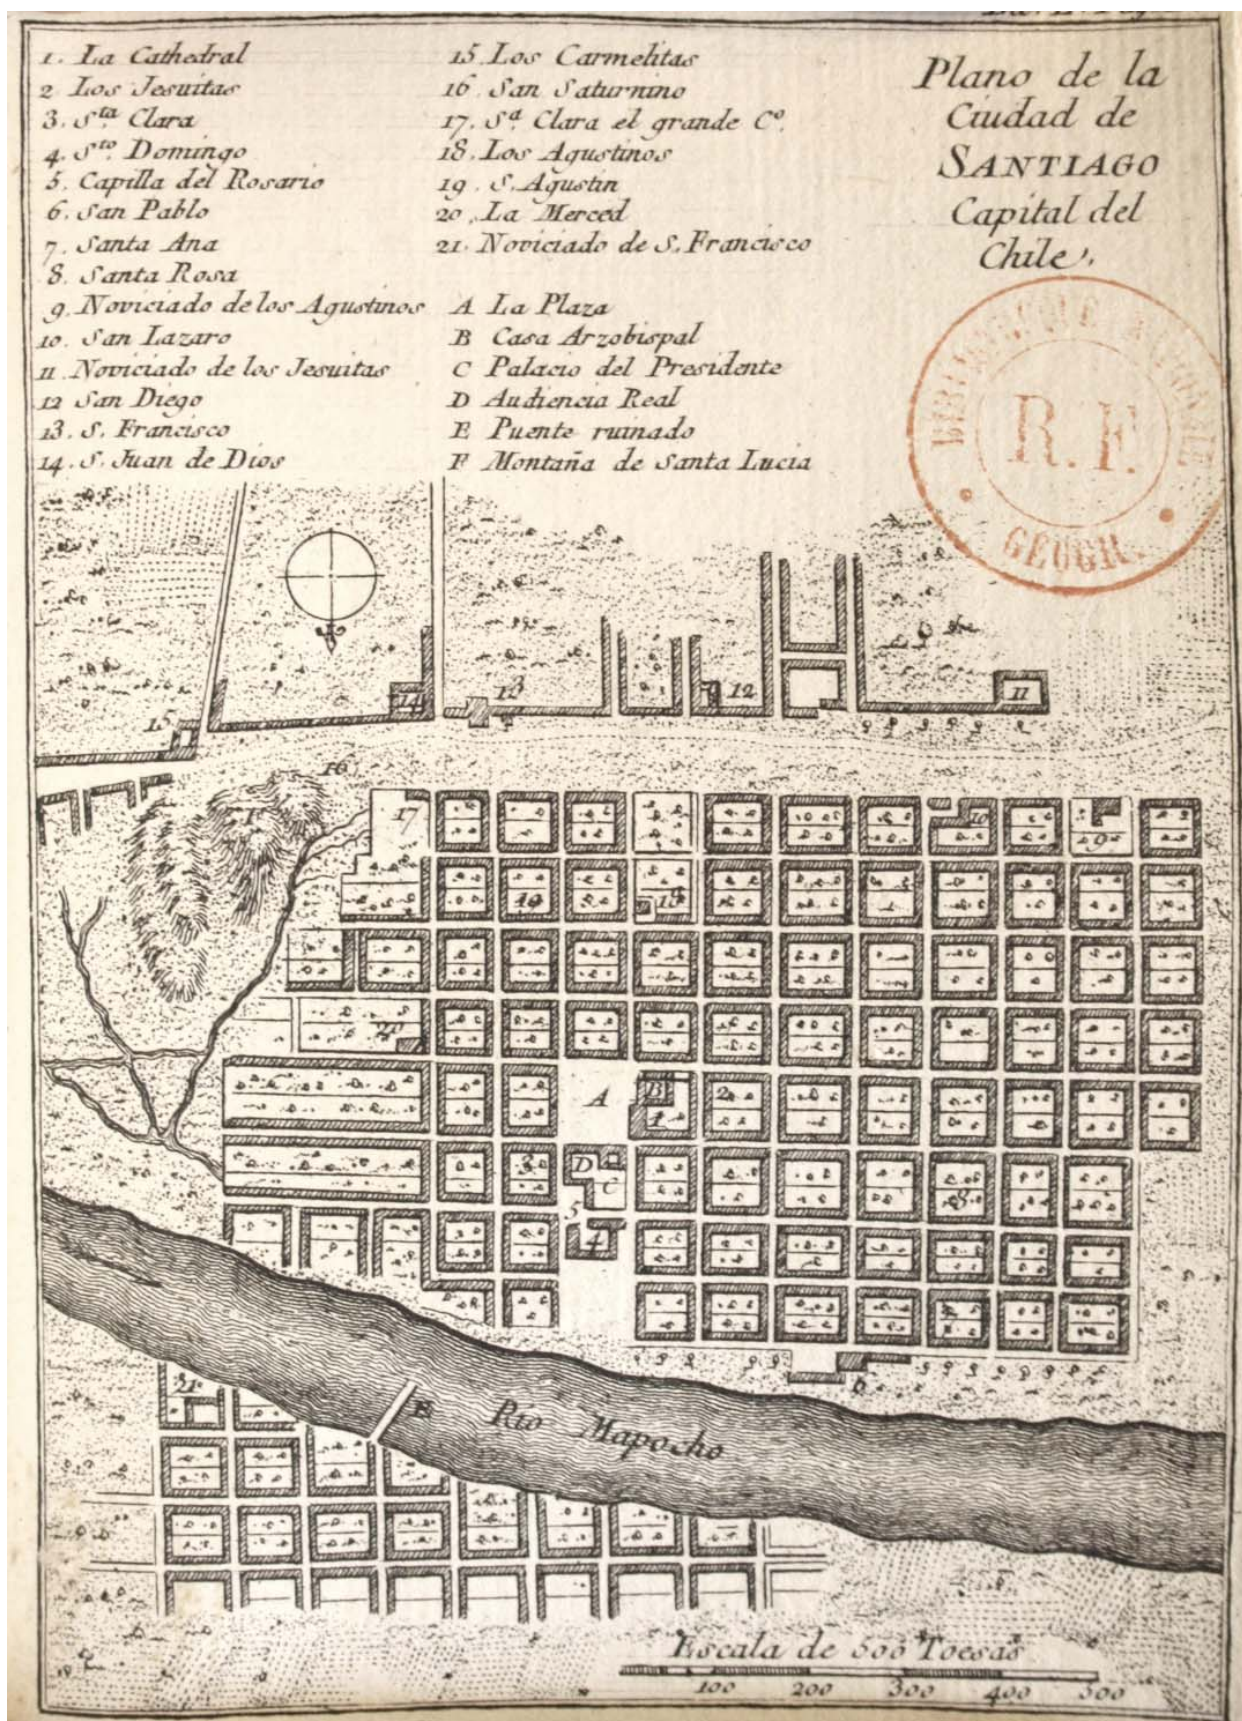 1. La Cathedral
2 Los Jesuitas
3. Sta Clara
4. Sto Domingo
5. Capilla del Rosario
6. San Pablo
7. Santa Ana
8. Santa Rosa
9. Noviciado de los Agustinos
10. San Lazaro
11. Noviciado de los Jesuitas
12 San Diego
13. S. Francisco
14. S. Juan de Dios
15. Los Carmelitas
16 San Saturnino
17. Sa. Clara el grande Co.
18. Los Agustinos
19. S. Agustin
20. La Merced
21. Noviciado de S. Francisco
A La Plaza
B Casa Arzobispal
C Palacio del Presidente
D Audiencia Real
E Puente ruinado
F Montaña de Santa Lucia
Plano de la
Ciudad de
SANTIAGO
Capital del
Chile.
R. F.
GEOGR.
14
13
12
11
15
16
17
10
9
19
18
20
A
B
1
2
3
D
C
8
5
4
6
21
E
Rio Mapocho
Escala de 500 Toesas
100 200 300 400 500